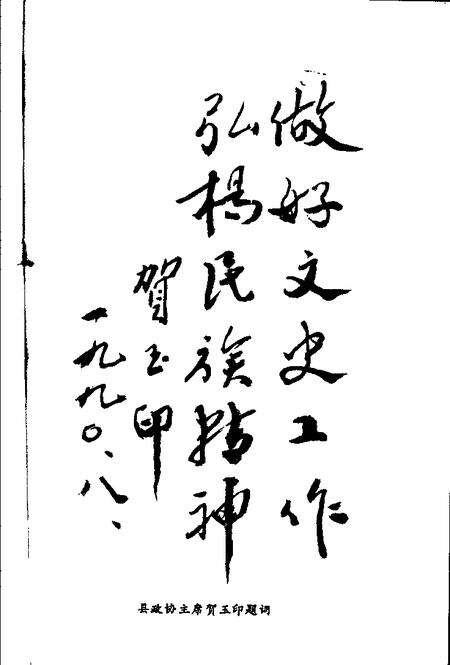 做好文史工作
弘楊民族精神
贺玉印
一九九〇、八、
县政协主席贺玉印题词